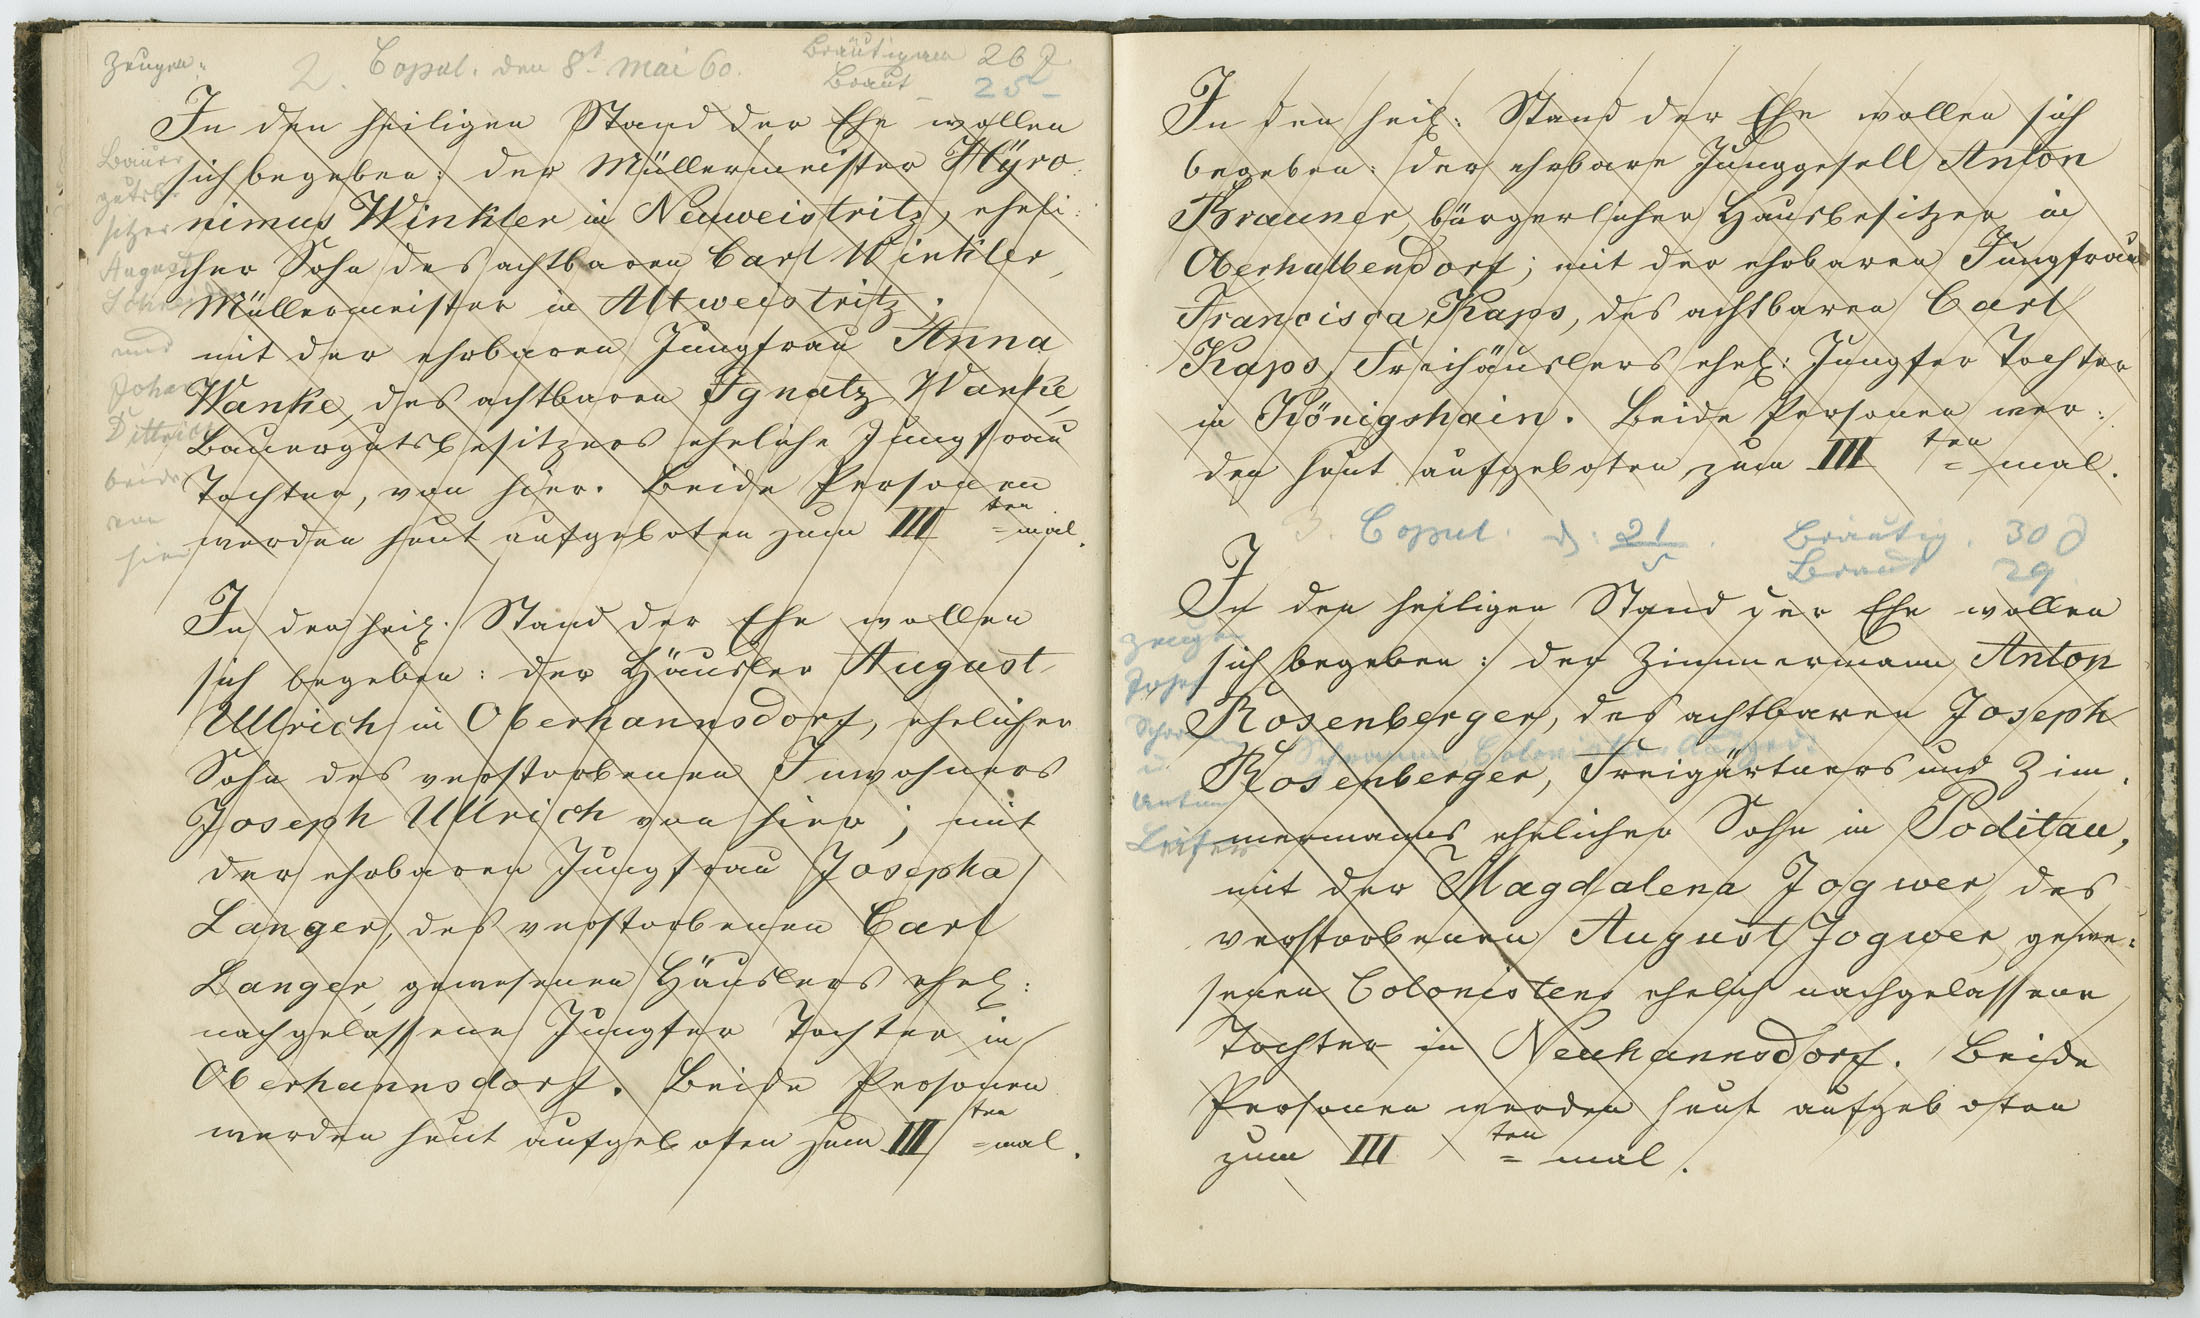 Zeugen:
2. Copul. den 8t Mai 60.
Bräutigam 26 J
Braut – 25 –
In den heiligen Stand der Ehe wollen
sich begeben: der Müllermeister Hyro-
nimus Winkler in Neuweistritz, eheli-
cher Sohn des achtbaren Carl Winkler,
Müllermeister in Altweistritz;
mit der ehrbaren Jungfrau Anna
Wanke, des achtbaren Ignatz Wanke,
Bauergutsbesitzers eheliche Jungfrau
Tochter, von hier. Beide Personen
werden heut aufgeboten zum III ten = mal.
Bauer
gutsbe
sitzer
August
und
Johan
Dittrich
beide
von
hier
In den heil. Stand der Ehe wollen
sich begeben: der Häusler August
Ullrich in Oberhannsdorf, ehelicher
Sohn des verstorbenen Inwohners
Joseph Ullrich von hier; mit
der ehrbaren Jungfrau Josepha
Langer, des verstorbenen Carl
Langer, gewesenen Häuslers ehel:
nachgelassene Jungfer Tochter in
Oberhannsdorf. Beide Personen
werden heut aufgeboten zum III ten = mal.
In den heil: Stand der Ehe wollen sich
begeben: der ehrbare Junggesell Anton
Brauner, bürgerlicher Hausbesitzer in
Oberhalbendorf; mit der ehrbaren Jungfrau
Francisca Kaps, des achtbaren Carl
Kaps, Freihäuslers ehel: Jungfer Tochter
in Königshain. Beide Personen wer-
den heut aufgeboten zum III ten = mal.
3. Copul. d: 21/5.
Bräutig. 30 J
Braut 29
In den heiligen Stand der Ehe wollen
sich begeben: der Zimmermann Anton
Rosenberger, des achtbaren Joseph
Rosenberger, Freigärtners und Zim-
mermanns ehelicher Sohn in Poditau,
mit der Magdalena Jogwer, des
verstorbenen August Jogwer, gewe-
senen Colonistens ehelich nachgelassene
Tochter in Neuhannsdorf. Beide
Personen werden heut aufgeboten
zum III ten = mal.
Zeugen
Josef
Schramm
u.
Anton